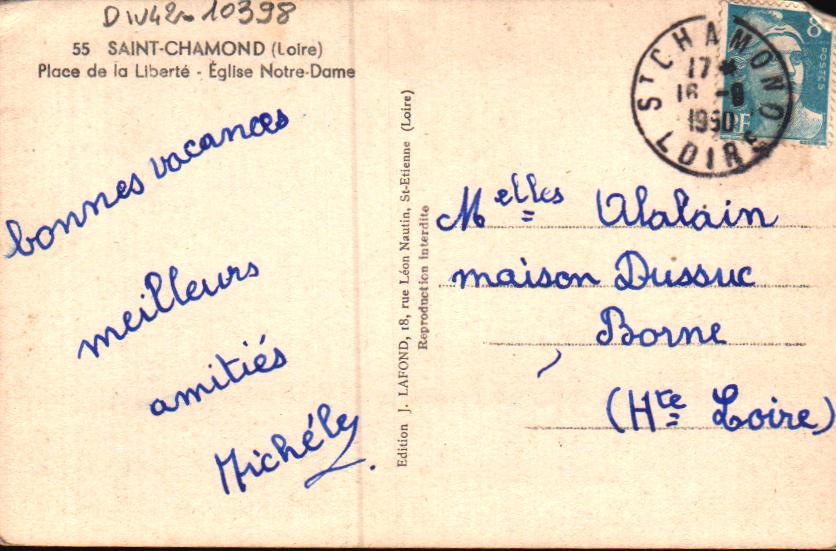 DIV42-10398
55 SAINT-CHAMOND (Loire)
Place de la Liberté - Église Notre-Dame
bonnes vacances
meilleurs
amitiés
Edition J. LAFOND, 18, rue Léon Nautin, St-Etienne (Loire)
Reproduction interdite
ST CHAMOND
17
16 - 8
1950
LOIRE
8F
POSTES
RF
Melles Alalain
maison Dussuc
Borne
(Hte Loire)